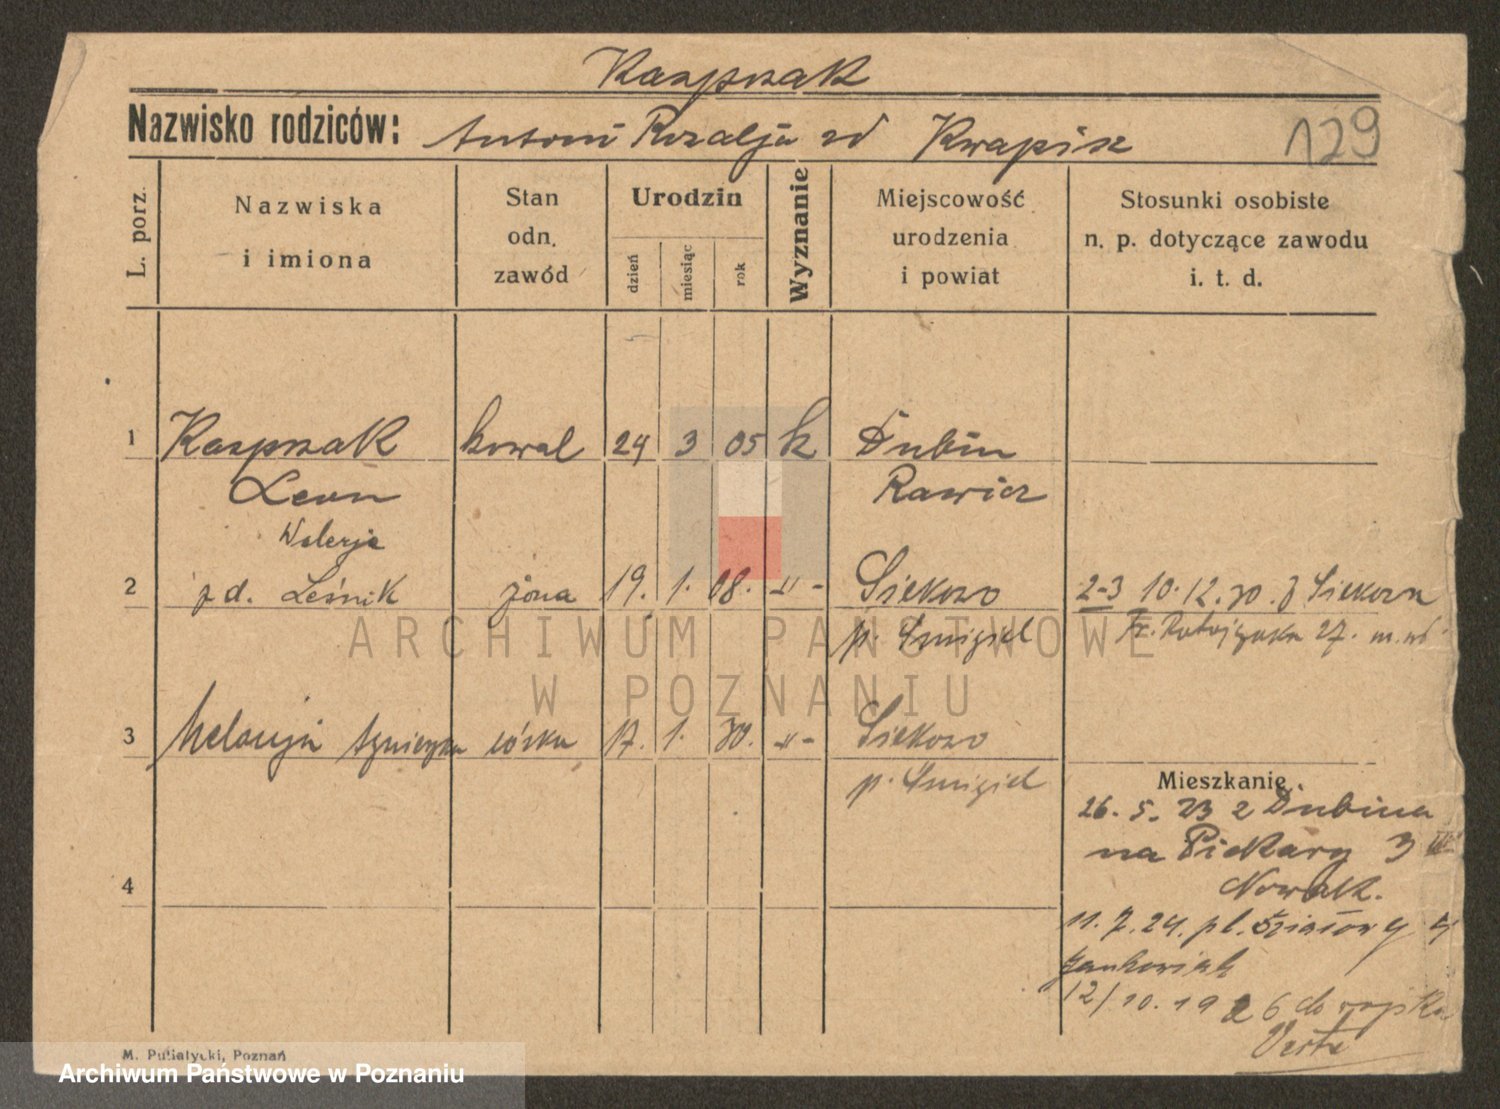 Kasprzak
Nazwisko rodziców: Antoni Rozalja zd Kwapisz
129
L. porz.
Nazwiska
i imiona
Stan
odn.
zawód
Urodzin
dzień
miesiąc
rok
Wyznanie
Miejscowość
urodzenia
i powiat
Stosunki osobiste
n. p. dotyczące zawodu
i. t. d.
1 Kasprzak kowal 24 3 05 k Dubin
Leon Rawicz
Walerja
2 z d. Leśnik żona 19. 1. 08. -"- Siekowo 2-3 10.12.30. z Siekowa
p. Śmigiel Fr. Ratajczaka 27. m.
3 Melanja Agnieszka córka 17. 1. 30. -"- Siekowo
p. Śmigiel
Mieszkanie
26. 5. 23 z Dubina
na Piekary 3
Nowak.
4
11. 7. 24. pl. Działowy
Jankowiak
12/10. 1926 do wojska
Verte
M. Putiatycki, Poznań
ARCHIWUM PAŃSTWOWE
W POZNANIU
Archiwum Państwowe w Poznaniu